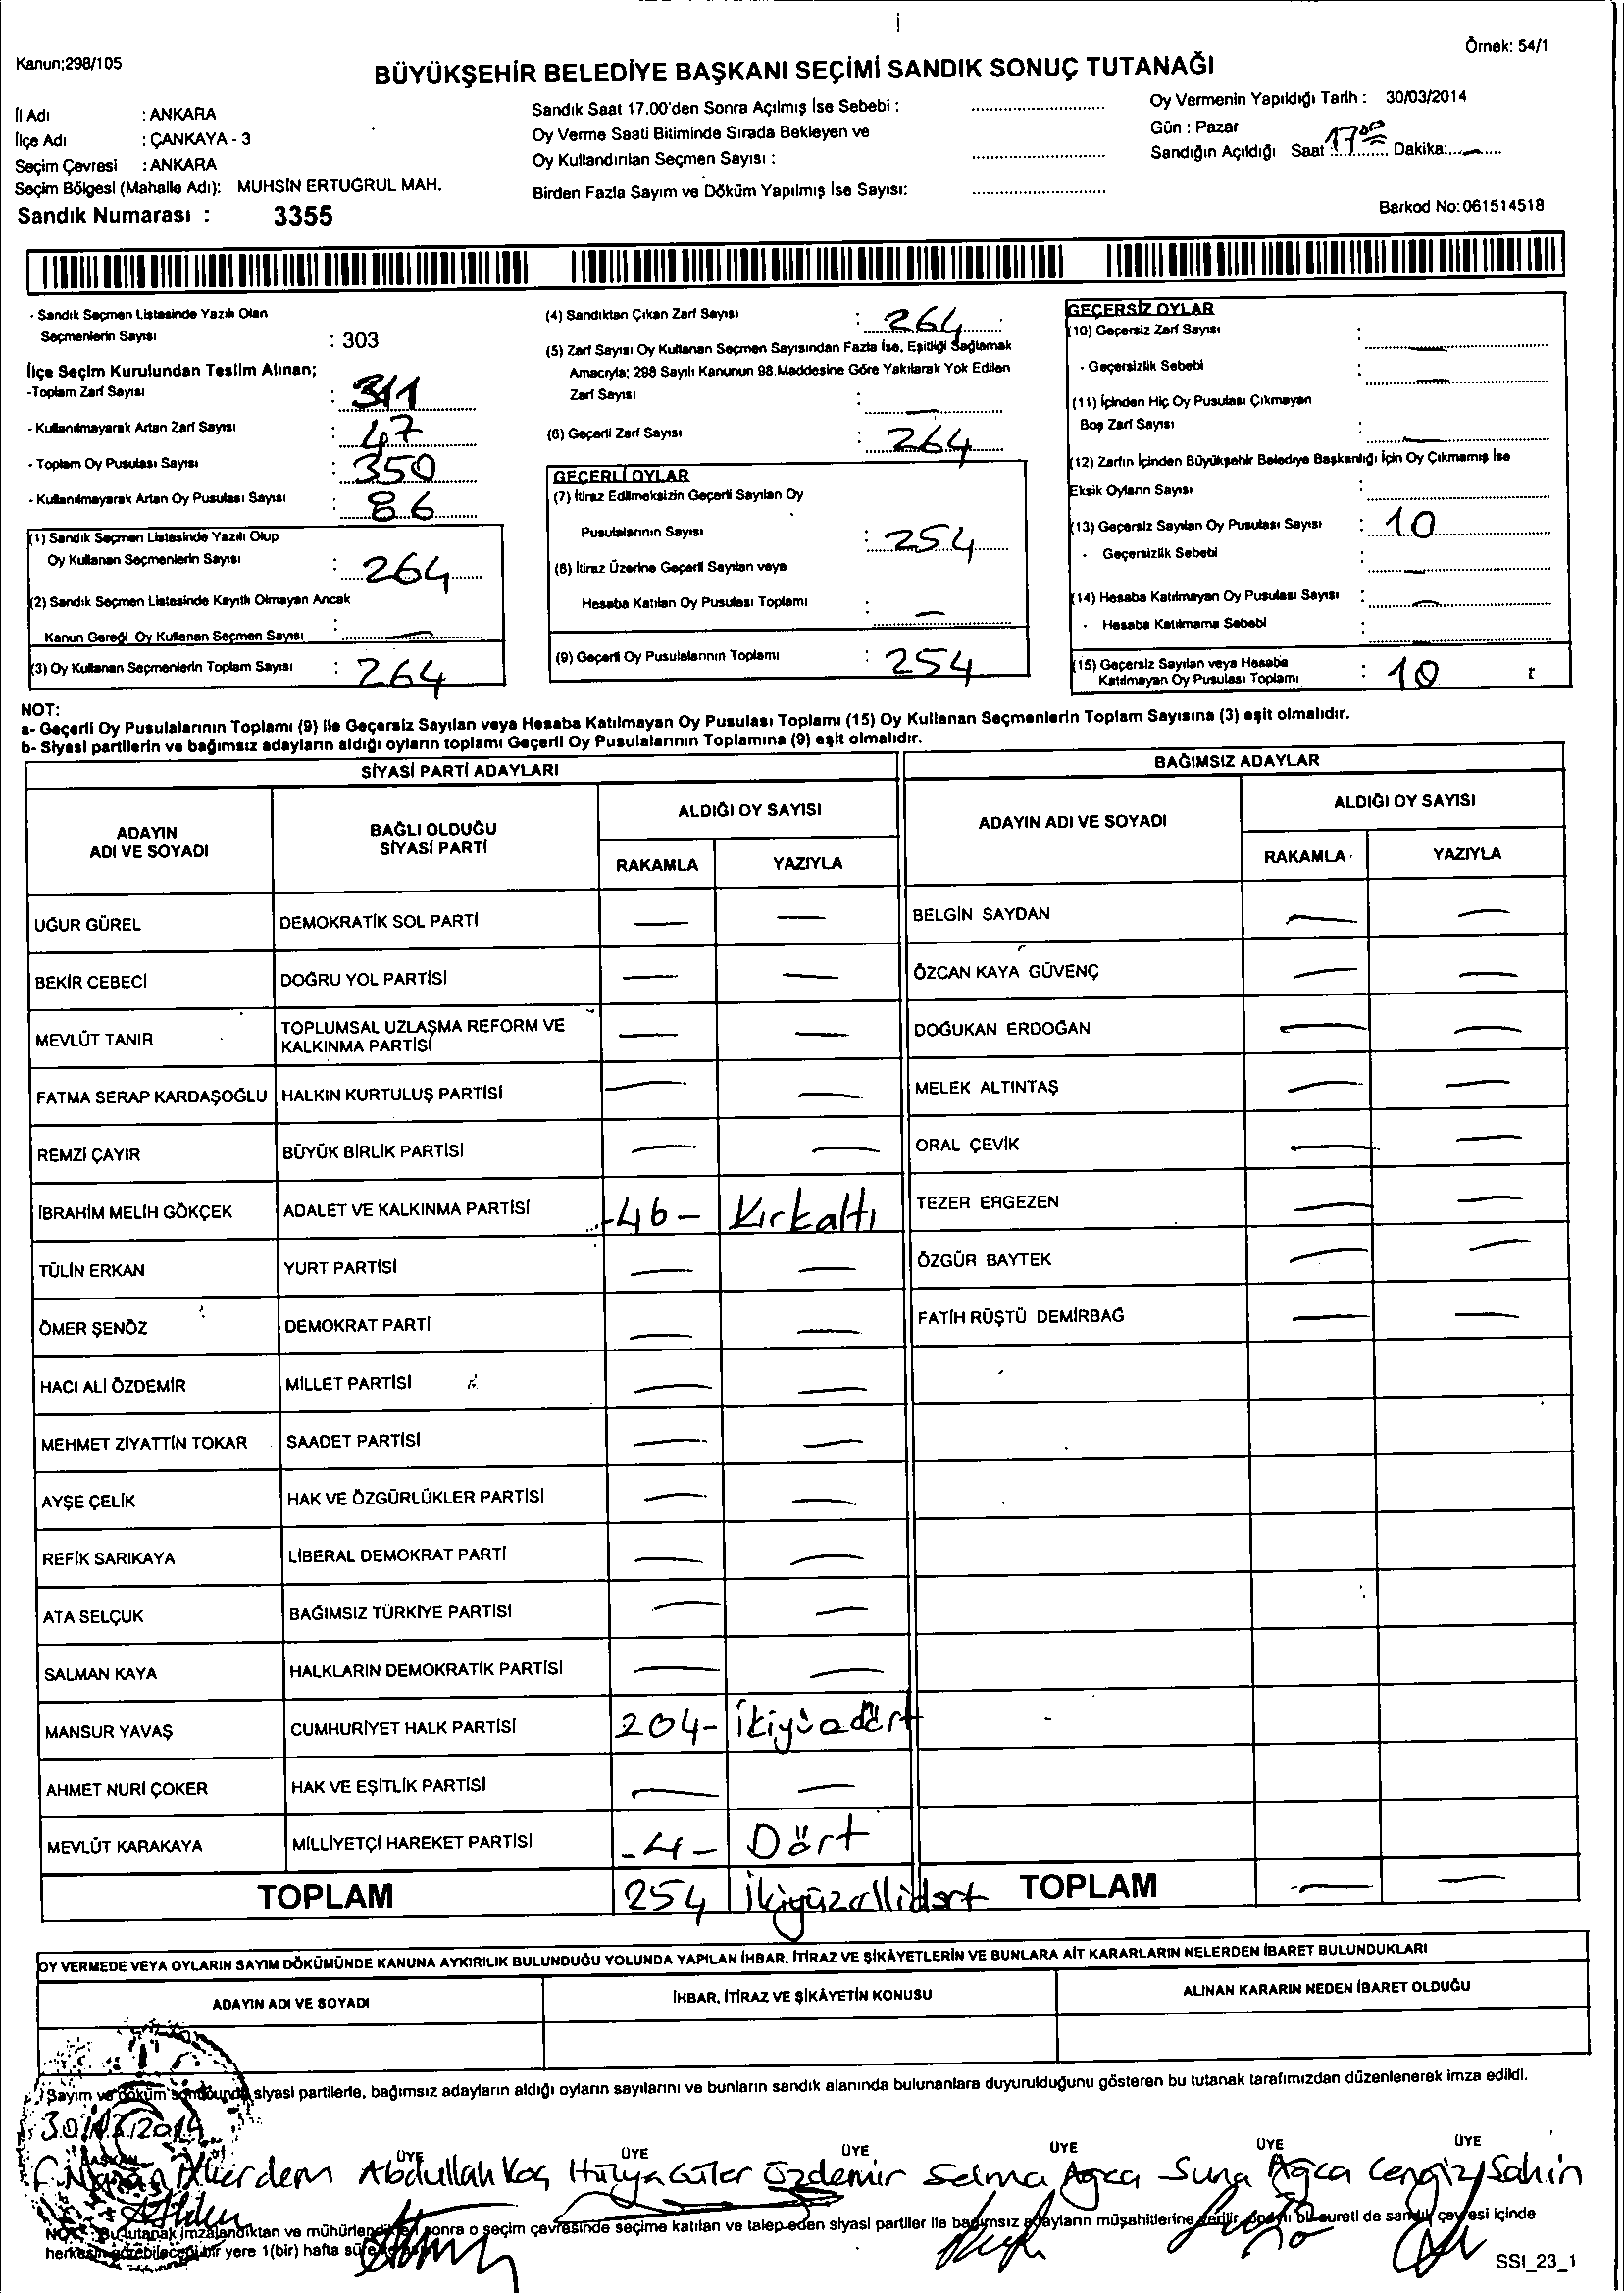 Kanun;298/105
Örnek: 54/1
BÜYÜKŞEHİR BELEDİYE BAŞKANI SEÇİMİ SANDIK SONUÇ TUTANAĞI
İl Adı : ANKARA
İlçe Adı : ÇANKAYA - 3
Seçim Çevresi : ANKARA
Seçim Bölgesi (Mahalle Adı): MUHSİN ERTUĞRUL MAH.
Sandık Numarası : 3355
Sandık Saat 17.00'den Sonra Açılmış İse Sebebi :
Oy Verme Saati Bitiminde Sırada Bekleyen ve
Oy Kullandırılan Seçmen Sayısı :
Birden Fazla Sayım ve Döküm Yapılmış İse Sayısı:
Oy Vermenin Yapıldığı Tarih : 30/03/2014
Gün : Pazar
Sandığın Açıldığı Saat 17 00 Dakika:
Barkod No:061514518
- Sandık Seçmen Listesinde Yazılı Olan
Seçmenlerin Sayısı : 303
İlçe Seçim Kurulundan Teslim Alınan;
-Toplam Zarf Sayısı : 311
- Kullanılmayarak Artan Zarf Sayısı : 47
- Toplam Oy Pusulası Sayısı : 350
- Kullanılmayarak Artan Oy Pusulası Sayısı : 86
(1) Sandık Seçmen Listesinde Yazılı Olup
Oy Kullanan Seçmenlerin Sayısı : 264
(2) Sandık Seçmen Listesinde Kayıtlı Olmayan Ancak
Kanun Gereği Oy Kullanan Seçmen Sayısı : —
(3) Oy Kullanan Seçmenlerin Toplam Sayısı : 264
(4) Sandıktan Çıkan Zarf Sayısı : 264
(5) Zarf Sayısı Oy Kullanan Seçmen Sayısından Fazla İse, Eşitliği Sağlamak
Amacıyla; 298 Sayılı Kanunun 98.Maddesine Göre Yakılarak Yok Edilen
Zarf Sayısı : —
(6) Geçerli Zarf Sayısı : 264
GEÇERLİ OYLAR
(7) İtiraz Edilmeksizin Geçerli Sayılan Oy
Pusulalarının Sayısı : 254
(8) İtiraz Üzerine Geçerli Sayılan veya
Hesaba Katılan Oy Pusulası Toplamı : —
(9) Geçerli Oy Pusulalarının Toplamı : 254
GEÇERSİZ OYLAR
(10) Geçersiz Zarf Sayısı : —
- Geçersizlik Sebebi : —
(11) İçinden Hiç Oy Pusulası Çıkmayan
Boş Zarf Sayısı : —
(12) Zarfın İçinden Büyükşehir Belediye Başkanlığı İçin Oy Çıkmamış İse
Eksik Oyların Sayısı : —
(13) Geçersiz Sayılan Oy Pusulası Sayısı : 10
- Geçersizlik Sebebi : —
(14) Hesaba Katılmayan Oy Pusulası Sayısı : —
- Hesaba Katılmama Sebebi : —
(15) Geçersiz Sayılan veya Hesaba
Katılmayan Oy Pusulası Toplamı : 10
NOT:
a- Geçerli Oy Pusulalarının Toplamı (9) ile Geçersiz Sayılan veya Hesaba Katılmayan Oy Pusulası Toplamı (15) Oy Kullanan Seçmenlerin Toplam Sayısına (3) eşit olmalıdır.
b- Siyasi partilerin ve bağımsız adayların aldığı oyların toplamı Geçerli Oy Pusulalarının Toplamına (9) eşit olmalıdır.
SİYASİ PARTİ ADAYLARI
ADAYIN ADI VE SOYADI
BAĞLI OLDUĞU SİYASİ PARTİ
ALDIĞI OY SAYISI
RAKAMLA YAZIYLA
UĞUR GÜREL DEMOKRATİK SOL PARTİ — —
BEKİR CEBECİ DOĞRU YOL PARTİSİ — —
MEVLÜT TANIR TOPLUMSAL UZLAŞMA REFORM VE KALKINMA PARTİSİ — —
FATMA SERAP KARDAŞOĞLU HALKIN KURTULUŞ PARTİSİ — —
REMZİ ÇAYIR BÜYÜK BİRLİK PARTİSİ — —
İBRAHİM MELİH GÖKÇEK ADALET VE KALKINMA PARTİSİ -46- Kırkaltı
TÜLİN ERKAN YURT PARTİSİ — —
ÖMER ŞENÖZ DEMOKRAT PARTİ — —
HACI ALİ ÖZDEMİR MİLLET PARTİSİ — —
MEHMET ZİYATTİN TOKAR SAADET PARTİSİ — —
AYŞE ÇELİK HAK VE ÖZGÜRLÜKLER PARTİSİ — —
REFİK SARIKAYA LİBERAL DEMOKRAT PARTİ — —
ATA SELÇUK BAĞIMSIZ TÜRKİYE PARTİSİ — —
SALMAN KAYA HALKLARIN DEMOKRATİK PARTİSİ — —
MANSUR YAVAŞ CUMHURİYET HALK PARTİSİ 204-
AHMET NURİ ÇOKER HAK VE EŞİTLİK PARTİSİ — —
MEVLÜT KARAKAYA MİLLİYETÇİ HAREKET PARTİSİ -4- Dört
TOPLAM 254 İkiyüzellidört
BAĞIMSIZ ADAYLAR
ADAYIN ADI VE SOYADI
ALDIĞI OY SAYISI
RAKAMLA YAZIYLA
BELGİN SAYDAN — —
ÖZCAN KAYA GÜVENÇ — —
DOĞUKAN ERDOĞAN — —
MELEK ALTINTAŞ — —
ORAL ÇEVİK — —
TEZER ERGEZEN — —
ÖZGÜR BAYTEK — —
FATİH RÜŞTÜ DEMİRBAĞ — —
TOPLAM — —
OY VERMEDE VEYA OYLARIN SAYIM DÖKÜMÜNDE KANUNA AYKIRILIK BULUNDUĞU YOLUNDA YAPILAN İHBAR, İTİRAZ VE ŞİKÂYETLERİN VE BUNLARA AİT KARARLARIN NELERDEN İBARET BULUNDUKLARI
ADAYIN ADI VE SOYADI İHBAR, İTİRAZ VE ŞİKÂYETİN KONUSU ALINAN KARARIN NEDEN İBARET OLDUĞU
Sayım ve döküm sonucunda siyasi partilerle, bağımsız adayların aldığı oyların sayılarını ve bunların sandık alanında bulunanlara duyurulduğunu gösteren bu tutanak tarafımızdan düzenlenerek imza edildi.
30/03/2014
BAŞKAN ÜYE ÜYE ÜYE ÜYE ÜYE ÜYE
Abdullah Koç Hülya Güler Özdemir Selma Ağca Suna Ağca Cengiz Şahin
NOT: Bu tutanak imzalandıktan ve mühürlendikten sonra o seçim çevresinde seçime katılan ve talep eden siyasi partiler ile bağımsız adayların müşahitlerine verilir, onaylı bir sureti de sandık çevresi içinde
herkesin görebileceği bir yere 1(bir) hafta süre
SSI_23_1